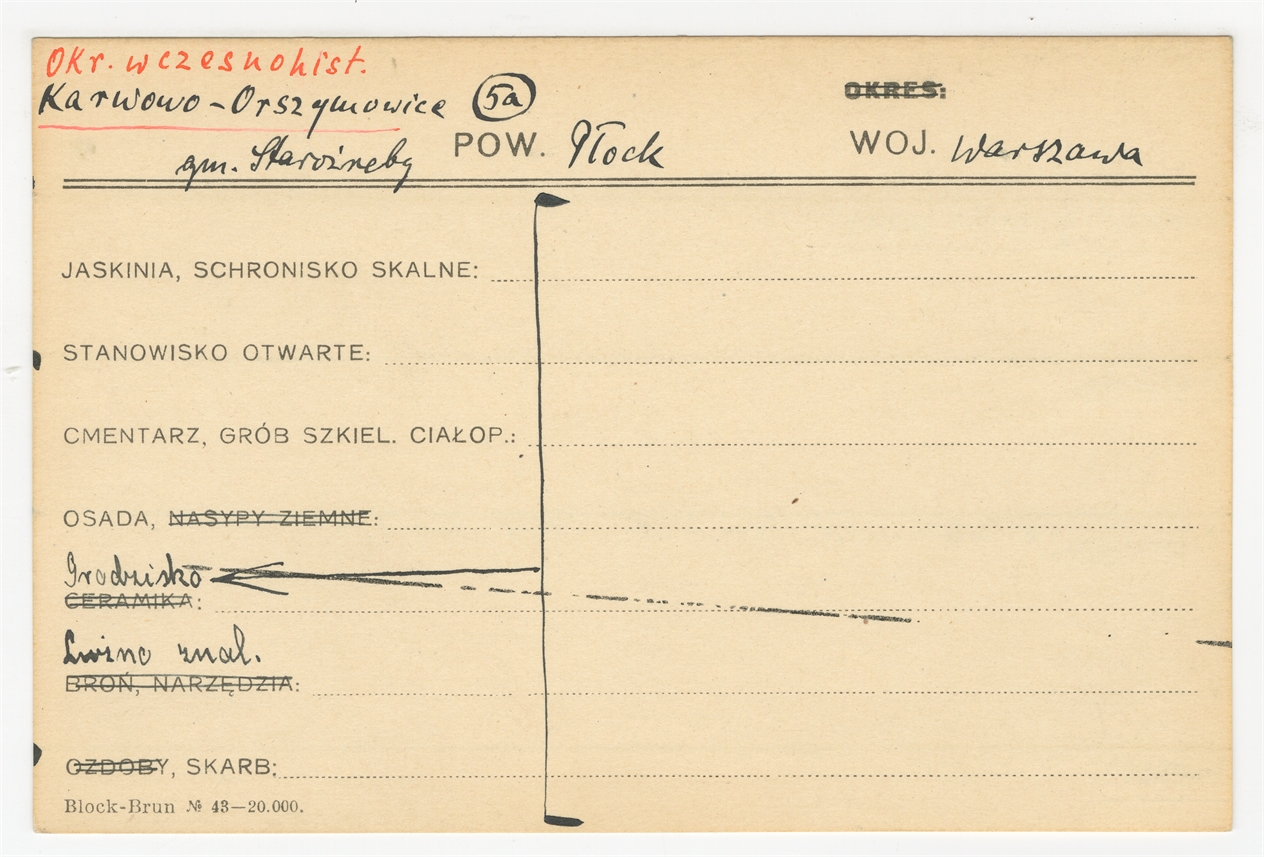 Okr. wczesnohist.
Karwowo-Orszymowice 5a OKRES:
gm. Staroźreby POW. Płock WOJ. Warszawa
JASKINIA, SCHRONISKO SKALNE:
STANOWISKO OTWARTE:
CMENTARZ, GRÓB SZKIEL. CIAŁOP.:
OSADA, NASYPY ZIEMNE:
Grodzisko
CERAMIKA:
Luźne znal.
BROŃ, NARZĘDZIA:
OZDOBY, SKARB:
Block-Brun № 43—20.000.